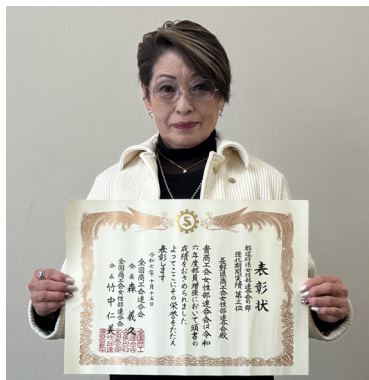 表彰状
都道府県女性部連合会の部
強化期間実績 第三位
長野県商工会女性部連合会殿
貴商工会女性部連合会は令和
六年度部員増強において頭書の
成績をおさめられました
よってここにその栄誉をたたえ
表彰します
全国商工会連合会
会長 森 義久
全国商工会女性部連合会
会長 竹中仁美